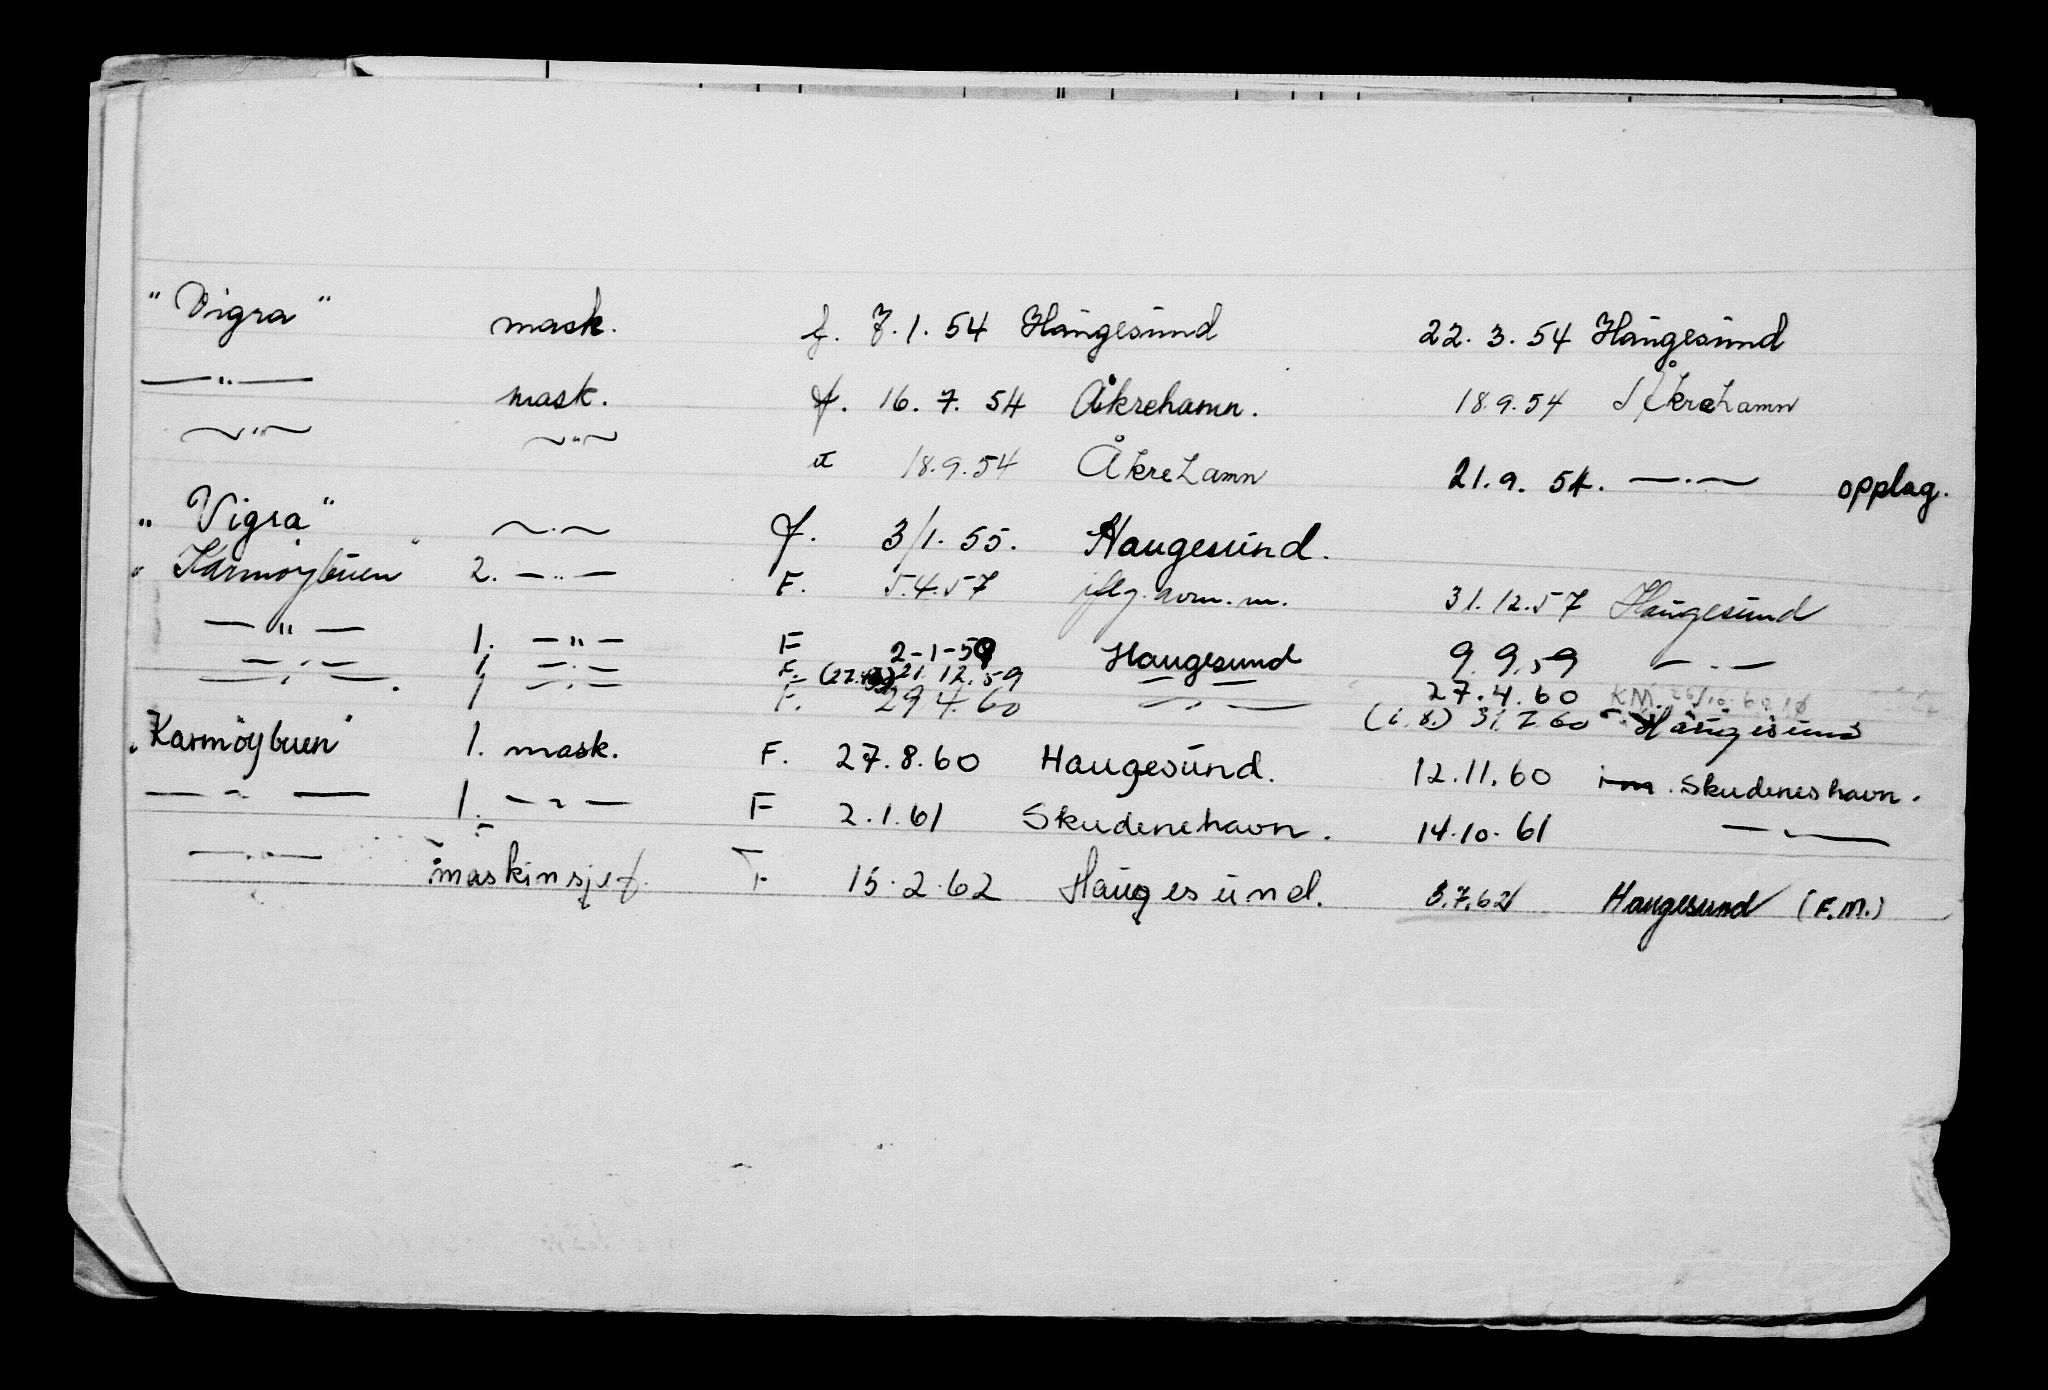 "Vigra" mask. f. 7.1.54 Haugesund 22.3.54 Haugesund
—"— mask. f. 16.7.54 Åkrehamn. 18.9.54 Åkrehamn
—"— —"— 18.9.54 Åkrehamn 21.9.54. —"— opplag.
"Vigra" —"— f. 3/1.55. Haugesund.
"Karmøybuen" 2. —"— F. 5.4.57 iflg. 31.12.57 Haugesund
—"— 1. —"— F 2-1-59 Haugesund 9.9.59 —"—
—"— 1. —"— F. 21.12.59 —"— 27.4.60 KM.
—"— 1 —"— F. 29.4.60 —"— 31.7.60 Haugesund
"Karmöybuen" 1. mask. F. 27.8.60 Haugesund. 12.11.60 Skudeneshavn.
—"— 1. —"— F 2.1.61 Skudenehavn. 14.10.61 —"—
—"— maskinsjef. F 15.2.62 Haugesund. 3.7.62 Haugesund (F.M.)